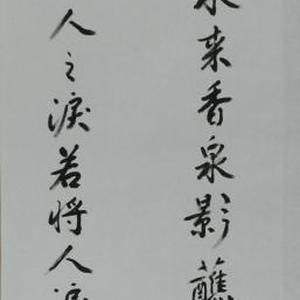 来香泉影蘸
人之淚若将人淚